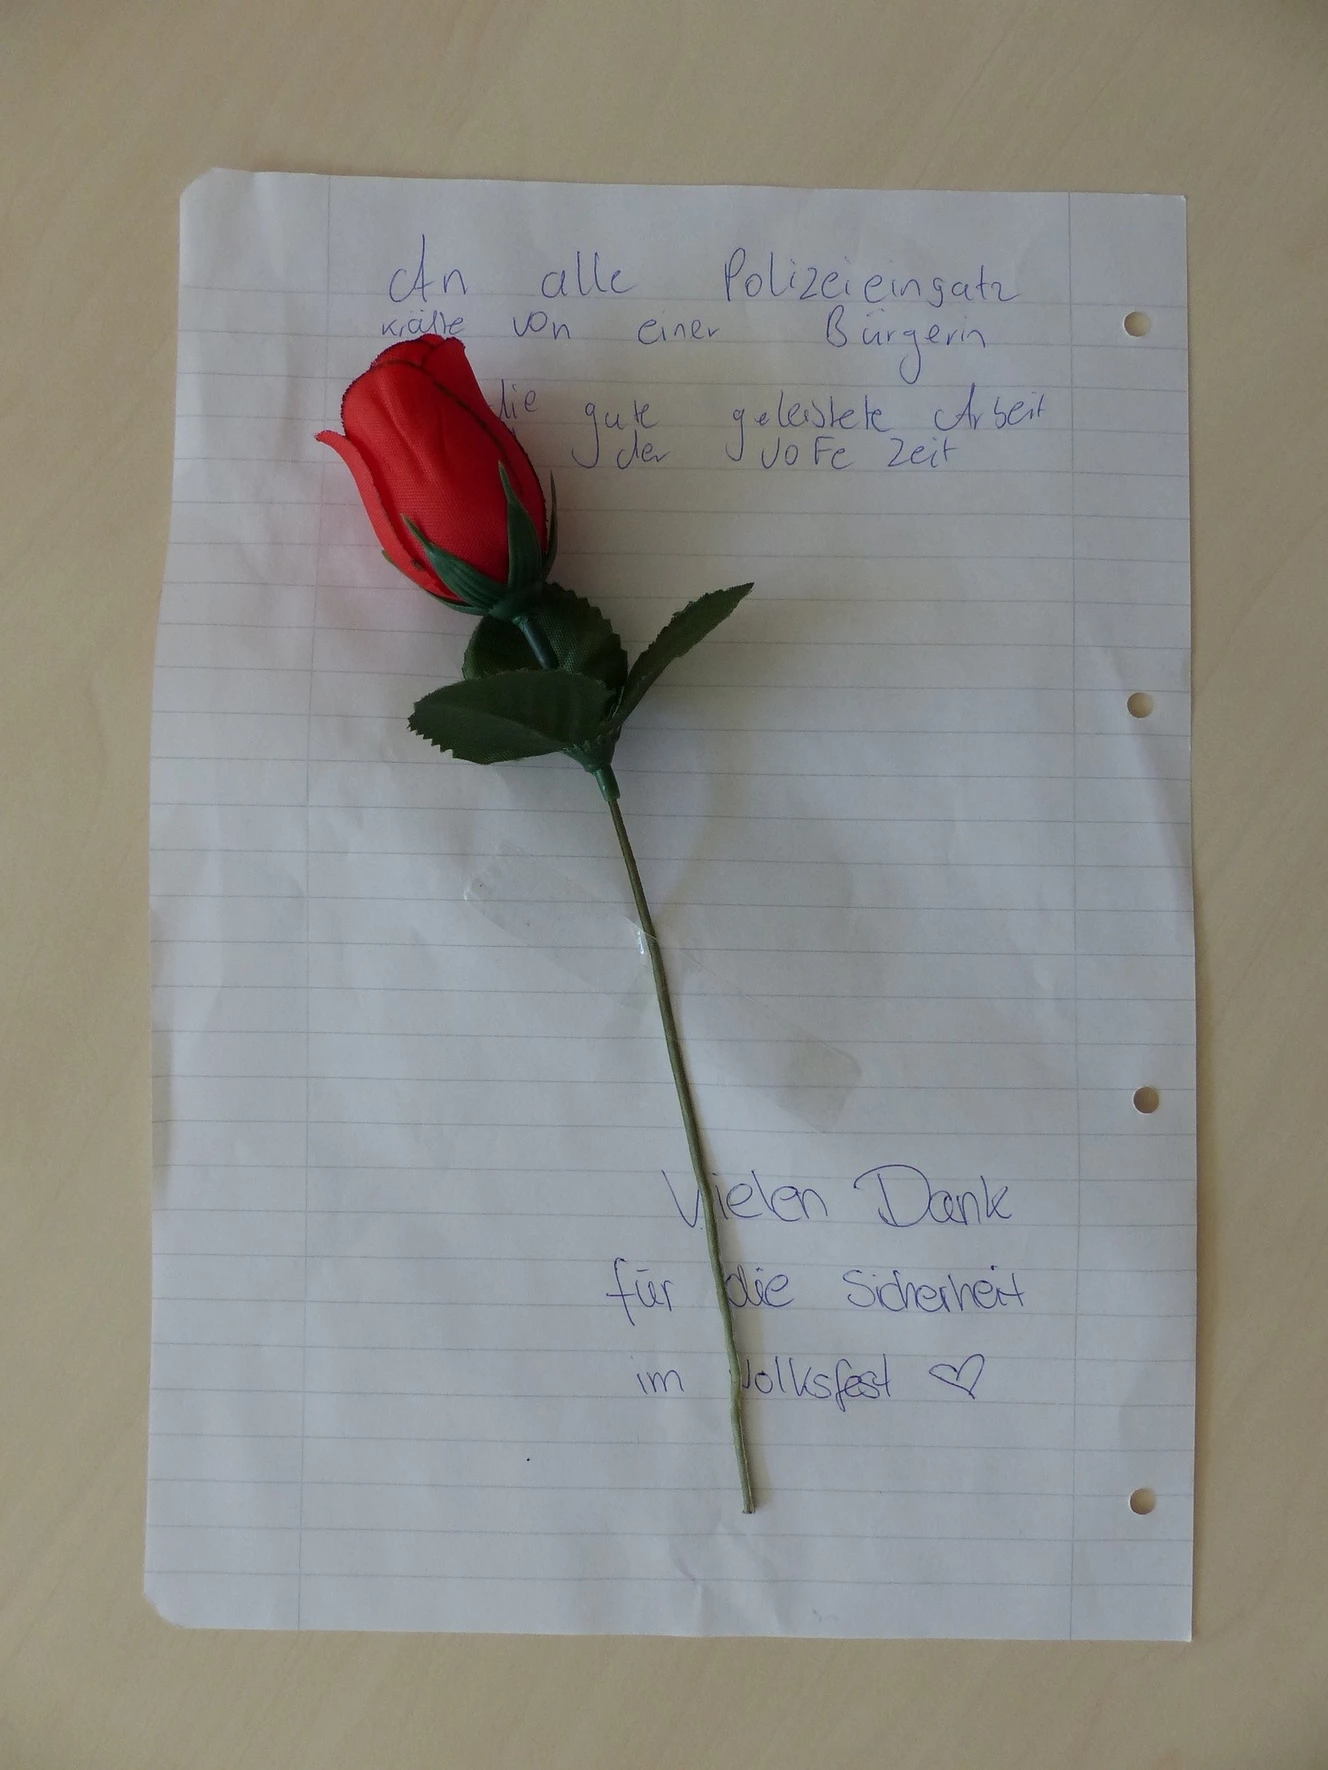 An alle Polizeieingatz
kräfte von einer Bürgerin
die gute geleistete Arbeit
der VoFe Zeit
Vielen Dank
für die Sicherheit
im Volksfest ♡